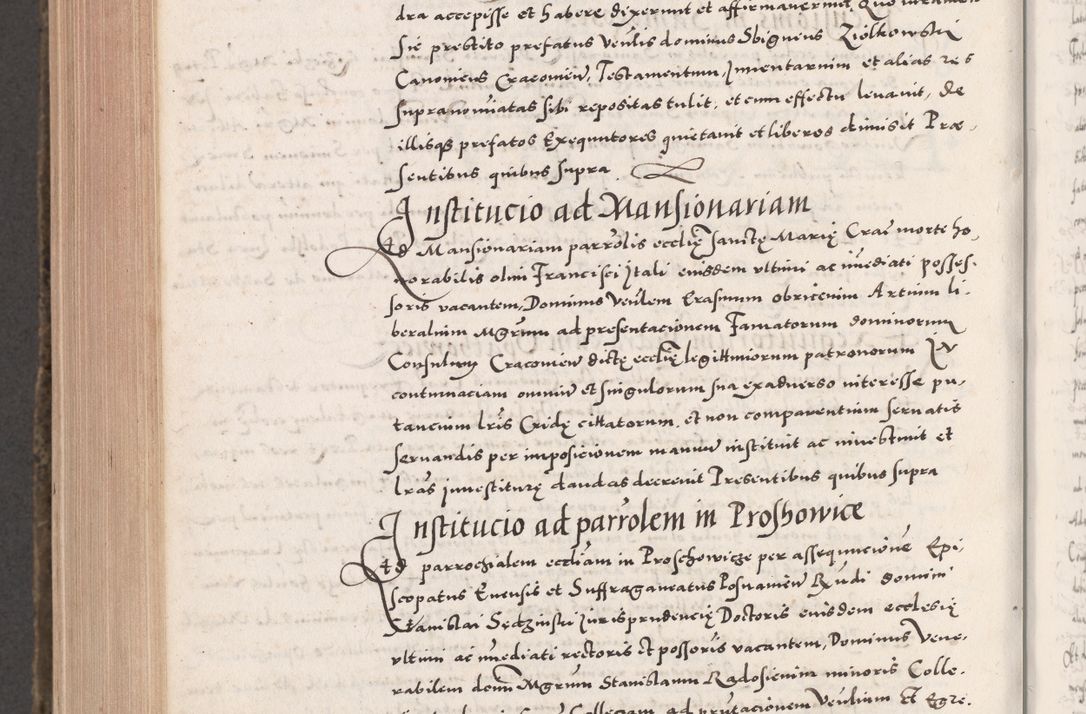 dra accepisse et habere dixerunt et affirmaverunt, Quo iuramen
sic prestito prefatus Venlis dominus Sbigneus Ziolkowski
Canonicus Cracovien, Testamentum, Inventarium et alias res
supranominatas sibi repositas tulit, et cum effectu levavit, de
illisqz prefatos Exequutores quietavit et liberos dimisit Præ-
sentibus quibus supra
Institucio ad Mansionariam
Ad Mansionariam parrolis ecclię sanctę Marię Crac morte ho-
norabilis olim Francisci Itali eiusdem ultimi ac imediati posses-
soris vacantem, Dominus Venlem Erasmum obricenim Artium li-
beralium Mgrum ad presentacionem Famatorum dominorum
Consulum Cracovien dictę ecclię legittimorum patronorum In
contumaciam omnium et singulorum sua exadverso interesse pu-
tancium lris Cridę cittatorum, et non comparentium servatis
servandis per imposicionem manuu instituit ac investivit et
lras investiturę dandas decrevit Presentibus quibus supra
Institucio ad parrolem in Proshowice
Ad parrochialem ecclam in Proschowicze per assequucione Epi
scopatus Enensis et Suffraganeatus Posnanien Rndi domini
Stanislai Sędzinski Iurisprudencię Doctoris eiusdem ecclesię
ultimi ac imediati rectoris et possoris vacantem, Dominus Vene-
rabilem domi Mgrum Stanislaum Radosienim minoris Colle-
Collegam ad pntacionem Venlium et Egre-